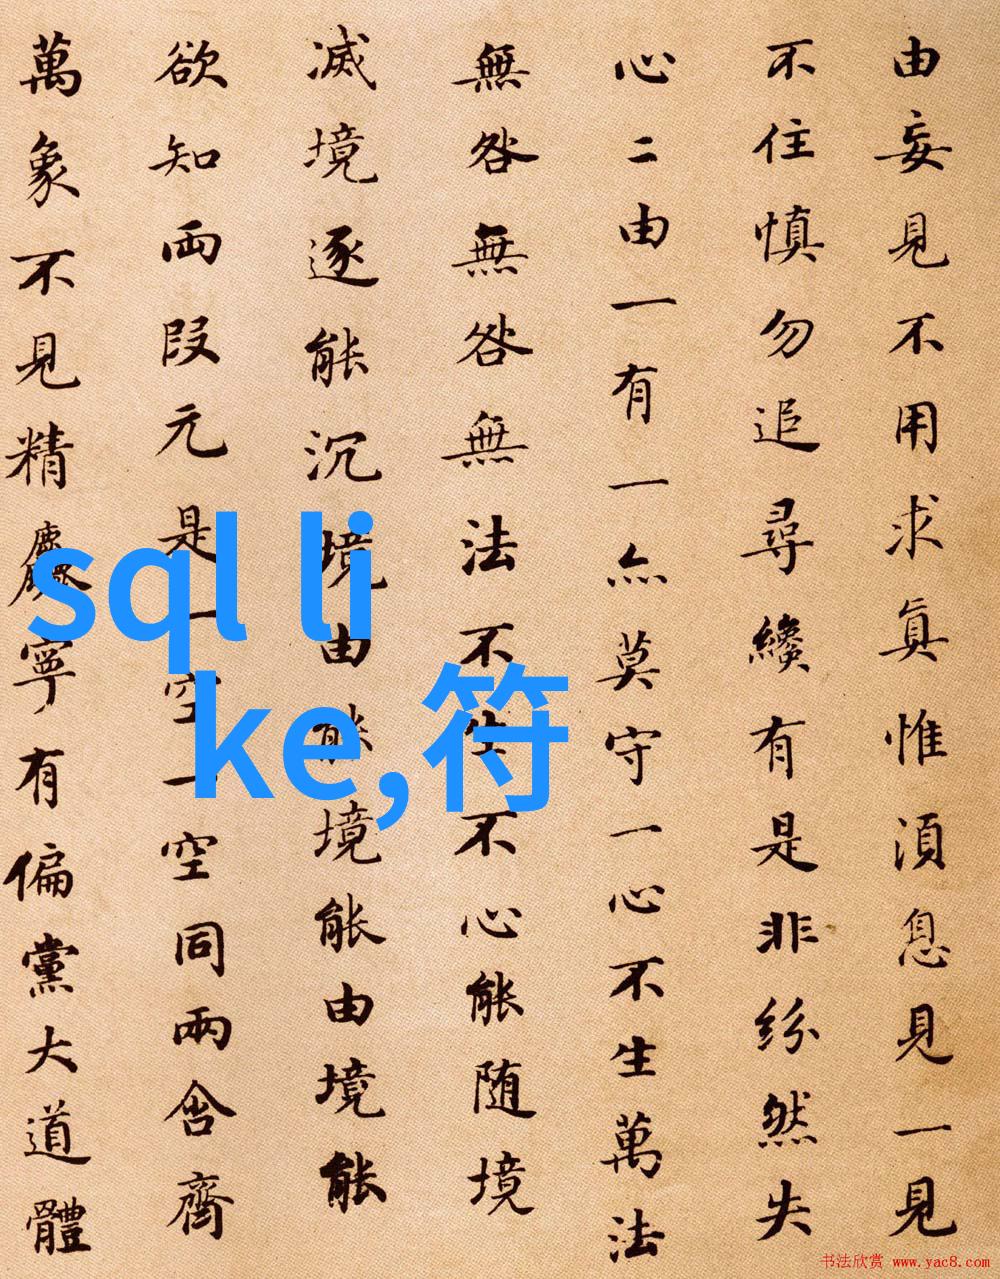 由妄見不用求眞惟湏息見一見
不住慎勿追尋纔有是非紛然失
心二由一有一亦莫守一心不生萬法
無咎無咎無法不生不心能随境
滅境逐能沉境由能境能由境能
欲知兩段元是一空一空同兩含齊
萬象不見精麤寧有偏黨大道體
sql li
ke,符
书法欣赏 www.yac8.com